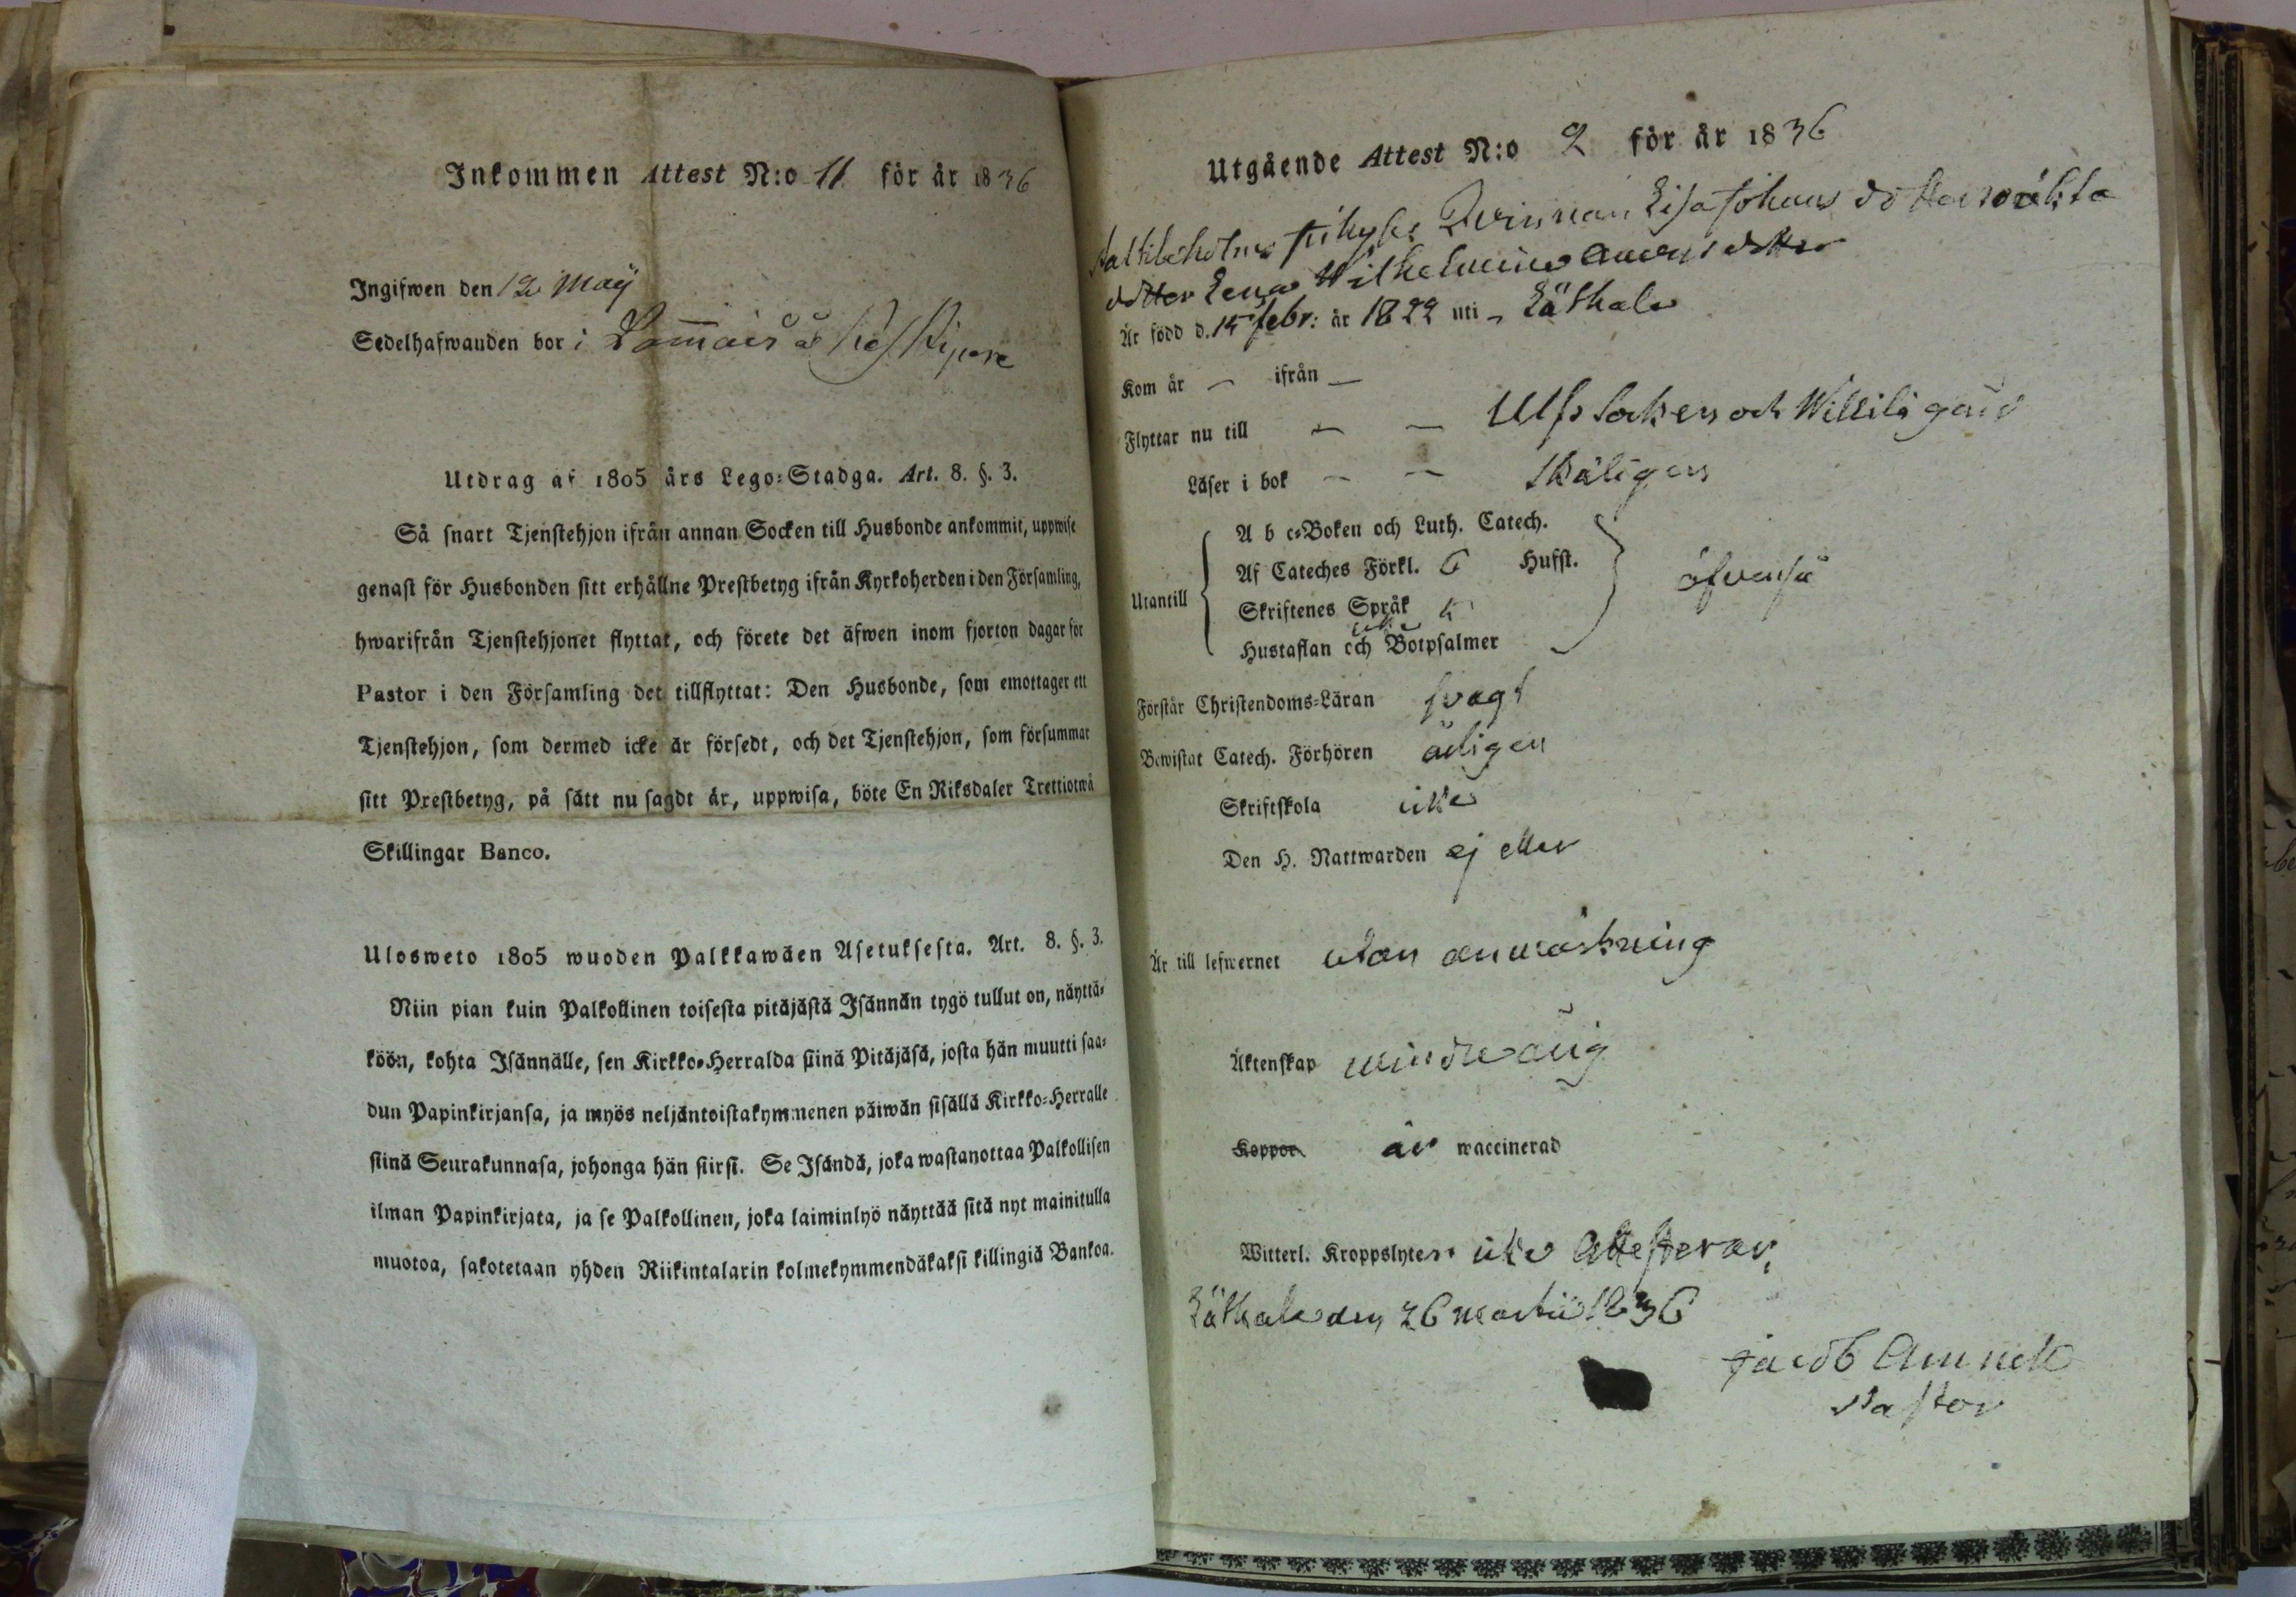 Inkommen Attest N:o 11 för år 1836
Ingifwen den 12 Maÿ
Sedelhafwanden bor i
Utdrag af 1805 års Lego-Stadga. Art. 8. §. 3.
Så snart Tjenstehjon ifrån annan Socken till Husbonde ankommit, uppwise
genast för Husbonden sitt erhållne Prestbetyg ifrån Kyrkoherden i den Församling,
hwarifrån Tjenstehjonet flyttat, och förete det äfwen inom fjorton dagar för
Pastor i den Församling det tillflyttat: Den Husbonde, som emottager ett
Tjenstehjon, som dermed icke är försedt, och det Tjenstehjon, som försummar
sitt Prestbetyg, på sätt nu sagdt är, uppwisa, böte En Riksdaler Trettiotwå
Skillingar Banco.
Ulosweto 1805 wuoden Palkkawäen Asetuksesta. Art. 8. §. 3.
Niin pian kuin Palkollinen toisesta pitäjästä Isännän tygö tullut on, näyttä-
köön, kohta Isännälle, sen Kirkko-Herralda siinä Pitäjäsä, josta hän muutti saa-
dun Papinkirjansa, ja myös neljäntoistakymmenen päiwän sisällä Kirkko-Herralle
siinä Seurakunnasa, johonga hän siirsi. Se Isändä, joka wastanottaa Palkollisen
ilman Papinkirjata, ja se Palkollinen, joka laiminlyö näyttää sitä nyt mainitulla
muotoa, sakotetaan yhden Riikintalarin kolmekymmendäkaksi killingiä Bankoa.
Utgående Attest N:o 2 för år 1836
Qvinnan Lisa Johans dotter oäkta
dotter Lena Wilhelmina Anders dotter
Är född d. 15 febr: år 1822 uti - Käthale
Kom år — ifrån —
Flyttar nu till — — Ulfsby Socken och Willilä gård
Läser i bok — — skäligen
A b c-Boken och Luth. Catech.
Af Cateches Förkl. 6 Husst.
Utantill
äfvenså
Skriftenes Språk 5
Hustaflan och Botpsalmer
Förstår Christendoms-Läran svagt
Bewistat Catech. Förhören årligen
Skriftskola icke
Den H. Nattwarden ej eller
Är till lefwernet utan anmärkning
Äktenskap minderårig
Koppor är waccinerad
Witterl. Kroppslyten icke Attesterar,
den 26 Martii 1836
Jacob Amnell
Pastor